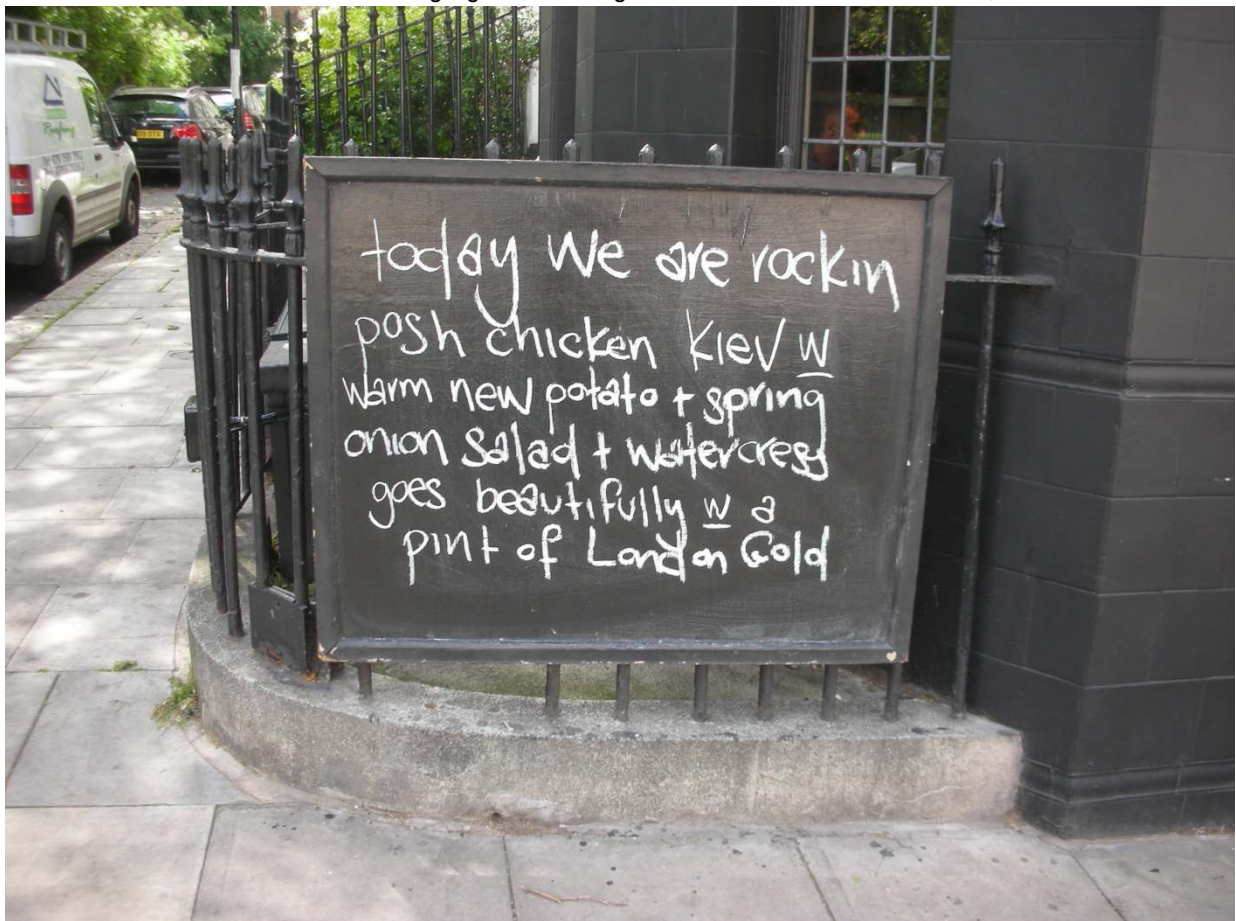 today we are rockin
posh chicken kiev w
warm new potato + spring
onion salad + watercress
goes beautifully w a
pint of London Gold
Roofing